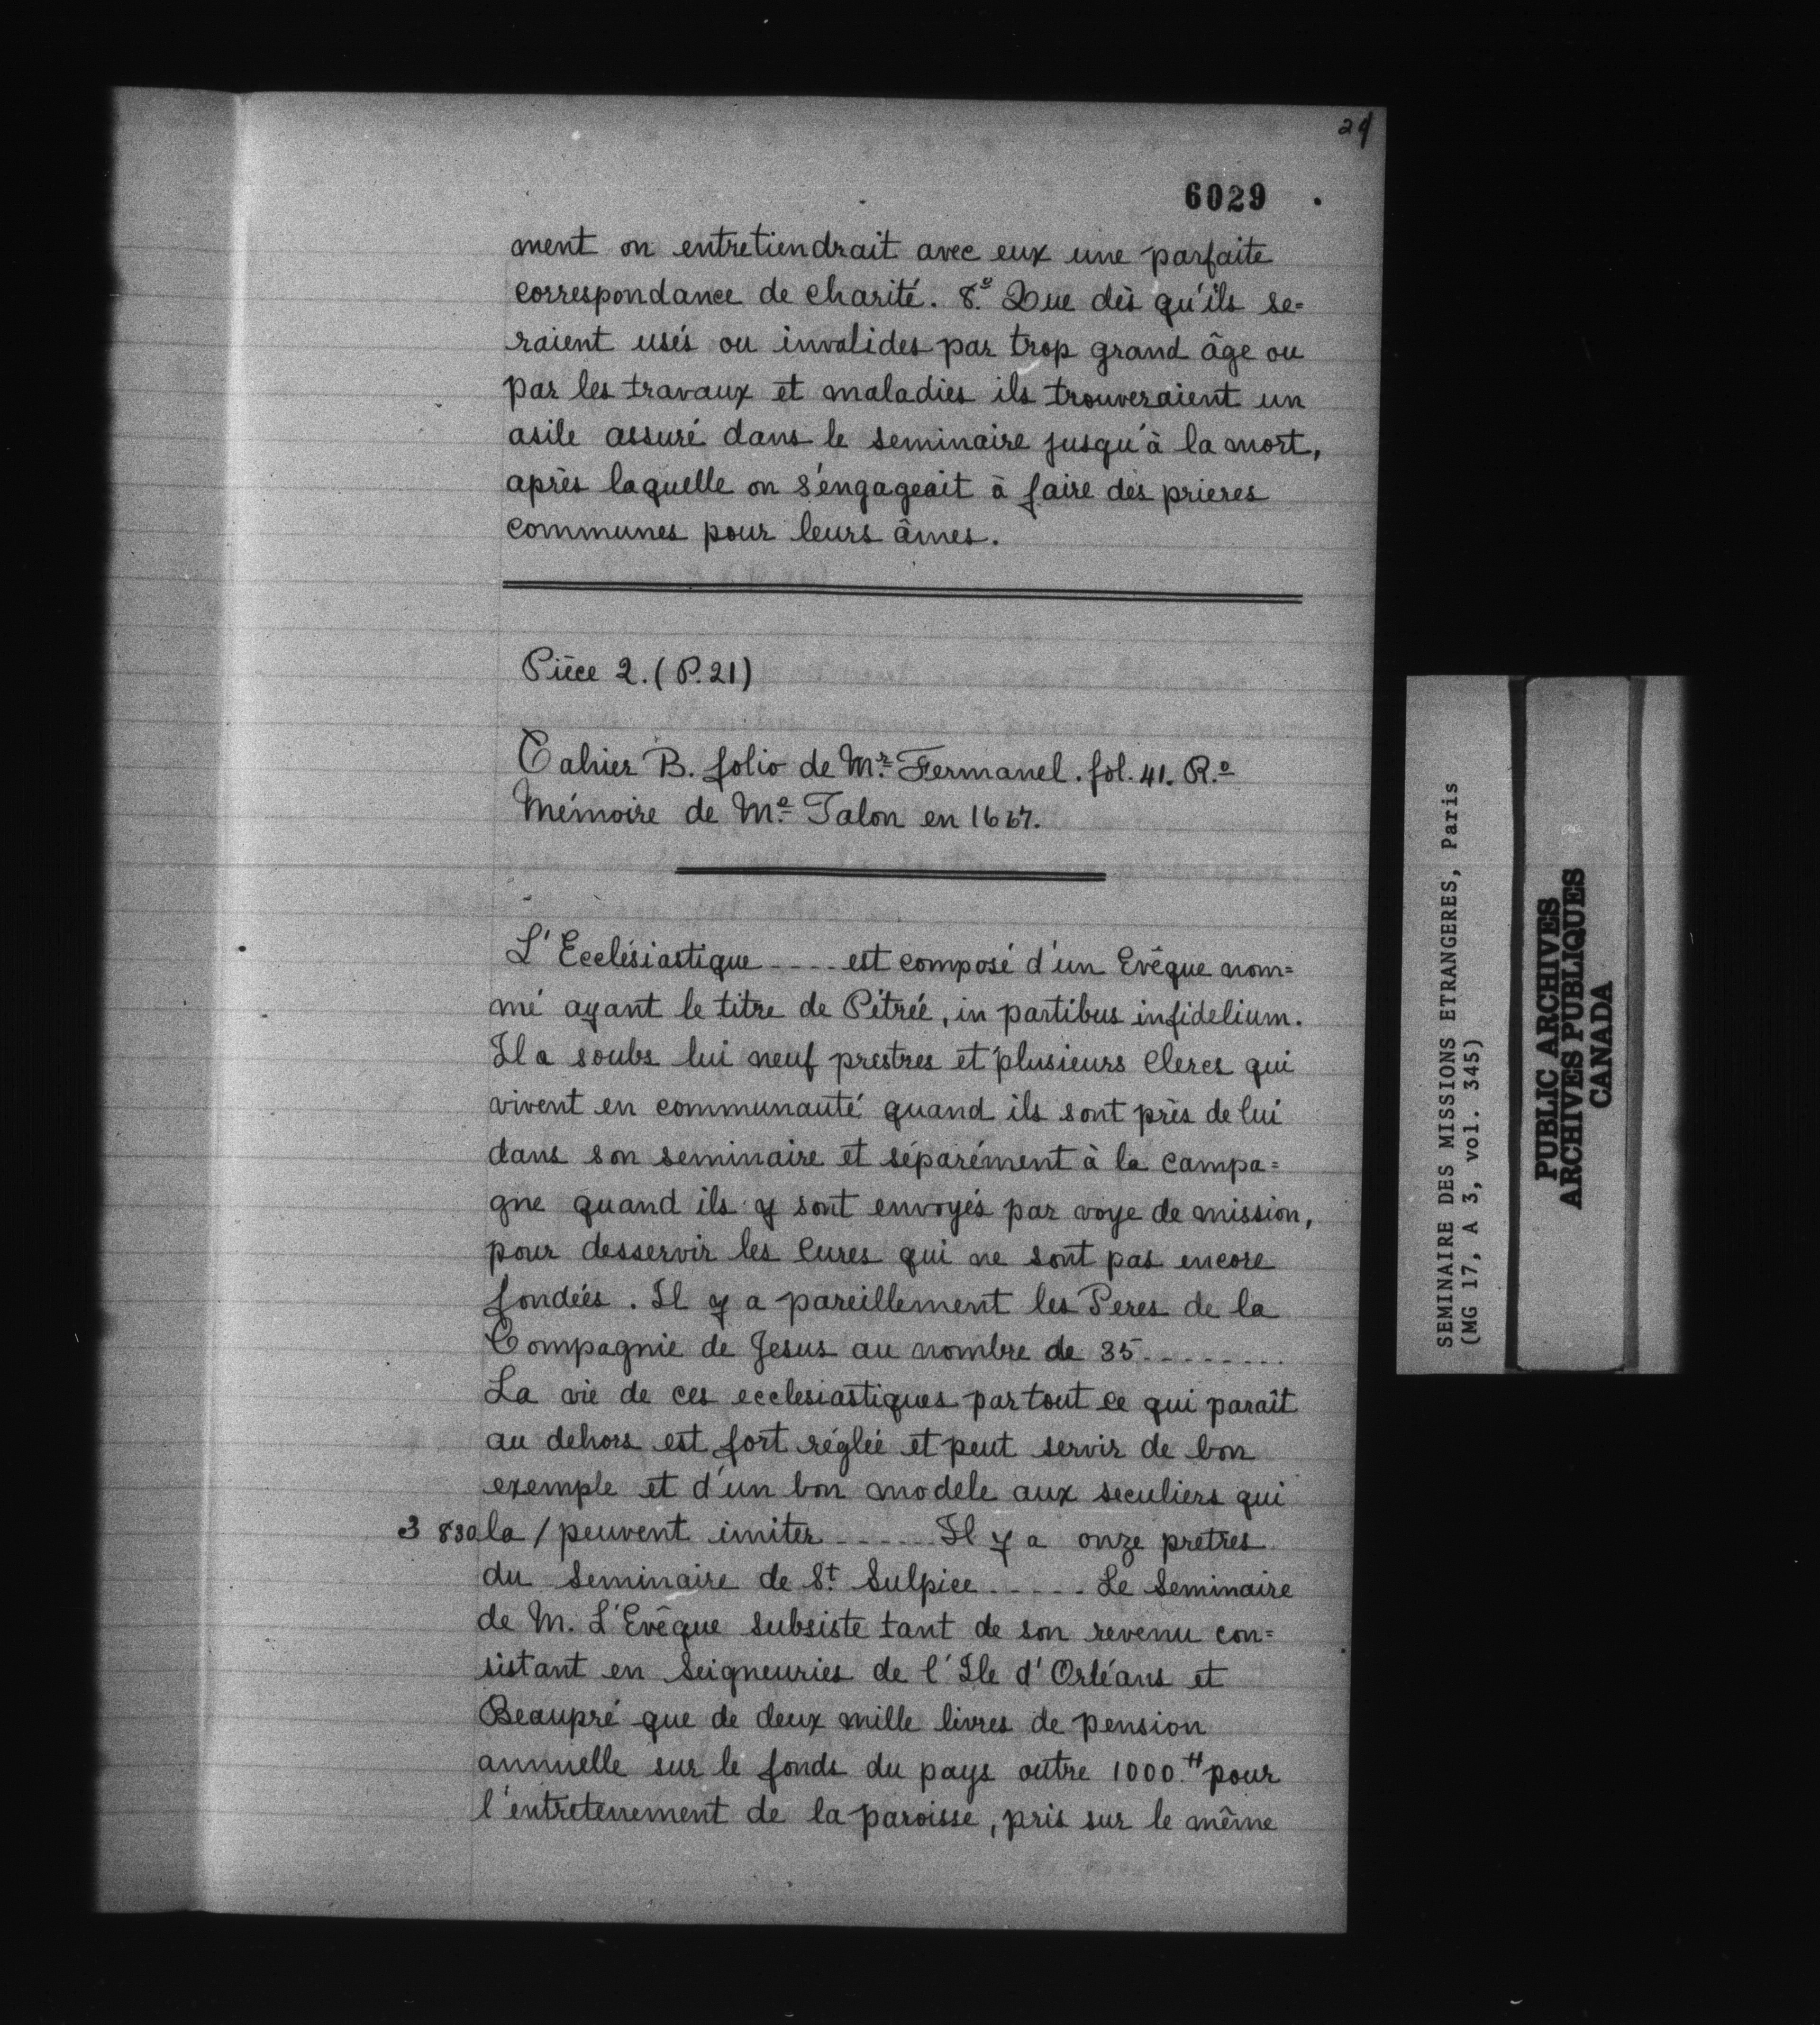 24
6029
ment on entretiendrait avec eux une parfaite
correspondance de charité. 8.º Que dès qu'ils se=
raient usés ou invalides par trop grand âge ou
par les travaux et maladies ils trouveraient un
asile assuré dans le seminaire jusqu'à la mort,
après laquelle on s'engageait à faire des prieres
communes pour leurs âmes.
Pièce 2. (P. 21)
Cahier B. folio de Mr. Fermanel. fol. 41. R.º
Mémoire de Me. Talon en 1667.
L'Ecclésiastique .... est composé d'un Evêque nom=
mé ayant le titre de Pétrée, in partibus infidelium.
Il a soubs lui neuf prestres et plusieurs clercs qui
vivent en communauté quand ils sont près de lui
dans son seminaire et séparément à la campa=
gne quand ils y sont envoyés par voye de mission,
pour desservir les cures qui ne sont pas encore
fondées. Il y a pareillement les Peres de la
Compagnie de Jesus au nombre de 35.........
La vie de ces ecclesiastiques par tout ce qui paraît
au dehors est fort réglée et peut servir de bon
exemple et d'un bon modele aux seculiers qui
3 830 la / peuvent imiter ...... Il y a onze pretres
du Seminaire de St. Sulpice ..... Le Seminaire
de M. L'Evêque subsiste tant de son revenu con=
sistant en Seigneuries de l'Ile d'Orléans et
Beaupré que de deux mille livres de pension
annuelle sur le fonds du pays outre 1000.# pour
l'entretenement de la paroisse, pris sur le même
SEMINAIRE DES MISSIONS ETRANGERES, Paris
(MG 17, A 3, vol. 345)
PUBLIC ARCHIVES
ARCHIVES PUBLIQUES
CANADA